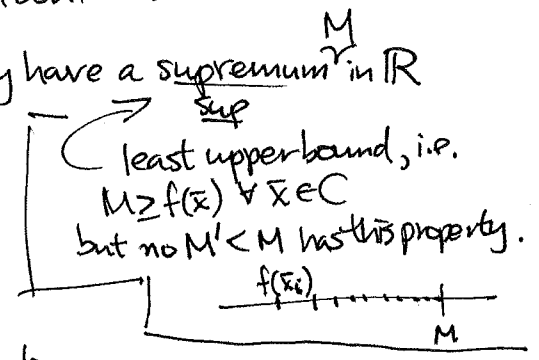 M
y have a supremum in ℝ
sup
least upper bound, i.e.
M ≥ f(x̄) ∀ x̄ ∈ C
but no M' < M has this property.
f(x̄ᵢ)
M